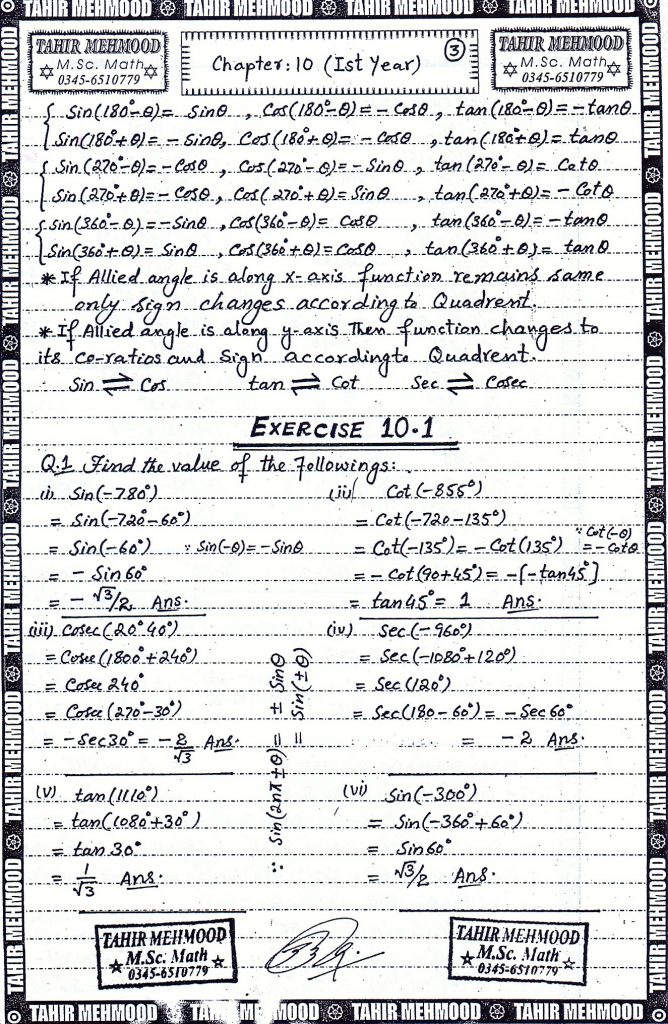 TAHIR MEHMOOD TAHIR MEHMOOD TAHIR MEHMOOD TAHIR MEHMOOD
TAHIR MEHMOOD
M.Sc. Math
0345-6510779
Chapter: 10 (Ist Year)
3
TAHIR MEHMOOD
M.Sc. Math
0345-6510779
Sin(180°-θ)= Sinθ , Cos(180°-θ)=-Cosθ , tan(180°-θ)=-tanθ
Sin(180°+θ)=-Sinθ, Cos(180°+θ)=-Cosθ , tan(180°+θ)= tanθ
Sin(270°-θ)=-Cosθ , Cos(270°-θ)=-Sinθ , tan(270°-θ)= Cotθ
Sin(270°+θ)=-Cosθ , Cos(270°+θ)= Sinθ , tan(270°+θ)= -Cotθ
Sin(360°-θ)=-Sinθ , Cos(360°-θ)= Cosθ , tan(360°-θ)=-tanθ
Sin(360°+θ)= Sinθ , Cos(360°+θ)= Cosθ , tan(360°+θ)= tanθ
* If Allied angle is along x-axis function remains same
only sign changes according to Quadrent.
* If Allied angle is along y-axis Then function changes to
its co-ratios and Sign according to Quadrent.
Sin ⇌ Cos tan ⇌ Cot Sec ⇌ Cosec
EXERCISE 10.1
Q.1 Find the value of the followings:
(i) Sin(-780°)
= Sin(-720-60°)
= Sin(-60°) ∵ Sin(-θ)=-Sinθ
= - Sin60°
= - √3/2 Ans.
(ii) Cot(-855°)
= Cot(-720-135°)
= Cot(-135°)= -Cot(135°) ∵ Cot(-θ) =-Cotθ
= -Cot(90+45°)= -[-tan45°]
= tan45° = 1 Ans.
(iii) Cosec(20°40°)
= Cosec(1800°+240°)
= Cosec 240°
= Cosec(270°-30°)
= -Sec30° = -2/√3 Ans.
(iv) Sec(-960°)
= Sec(-1080°+120°)
= Sec(120°)
= Sec(180-60°)= -Sec60°
= -2 Ans.
∵ Sin(2nπ±θ)= ± Sinθ
= Sin(±θ)
(v) tan(1110°)
= tan(1080°+30°)
= tan30°
= 1/√3 Ans.
(vi) Sin(-300°)
= Sin(-360°+60°)
= Sin60°
= √3/2 Ans.
TAHIR MEHMOOD
M.Sc. Math
0345-6510779
TAHIR MEHMOOD
M.Sc. Math
0345-6510779
TAHIR MEHMOOD TAHIR MEHMOOD TAHIR MEHMOOD